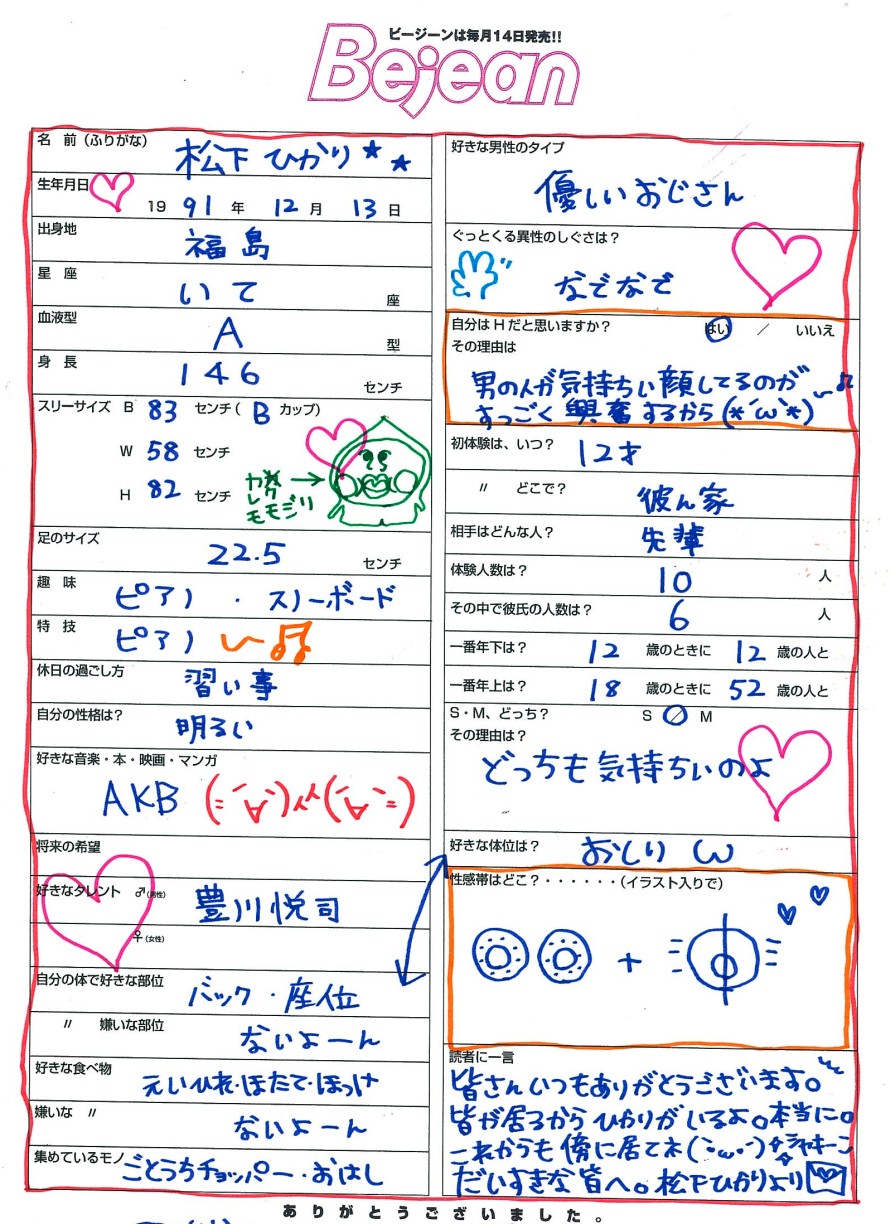 ビージーンは毎月14日発売!!
Bejean
名 前(ふりがな) 松下 ひかり
生年月日 1991年 12月 13日
出身地 福島
星 座 いて座
血液型 A型
身 長 146センチ
スリーサイズ B 83センチ(Bカップ)
W 58センチ
H 82センチ
足のサイズ 22.5センチ
趣 味 ピアノ・スノーボード
特 技 ピアノ
休日の過ごし方 習い事
自分の性格は? 明るい
好きな音楽・本・映画・マンガ
AKB
将来の希望
好きなタレント ♂(男性) 豊川悦司
♀(女性)
自分の体で好きな部位 バック・座位
〃 嫌いな部位 ないよーん
好きな食べ物 えいひれ・ほたて・ほっけ
嫌いな 〃 ないよーん
集めているモノ ごとうちチョッパー・おはし
好きな男性のタイプ
優しいおじさん
ぐっとくる異性のしぐさは?
なでなで
自分はHだと思いますか? はい / いいえ
その理由は
男の人が気持ちい顔してるのが
すっごく興奮するから(*´ω`*)
体験人数は? 10人
その中で彼氏の人数は? 6人
一番年上は? 18歳のときに52歳の人と
S・M、どっち? S / M
その理由は?
どっちも気持ちいのよ
好きな体位は? おしり ω
性感帯はどこ?・・・・・・(イラスト入りで)
読者に一言
皆さんいつもありがとうございます。
皆が居るからひかりがいるよ。本当に。
これからも傍に居てネ(・ω・)シャキーン
だいすきな皆へ。松下ひかりより
ありがとうございました。